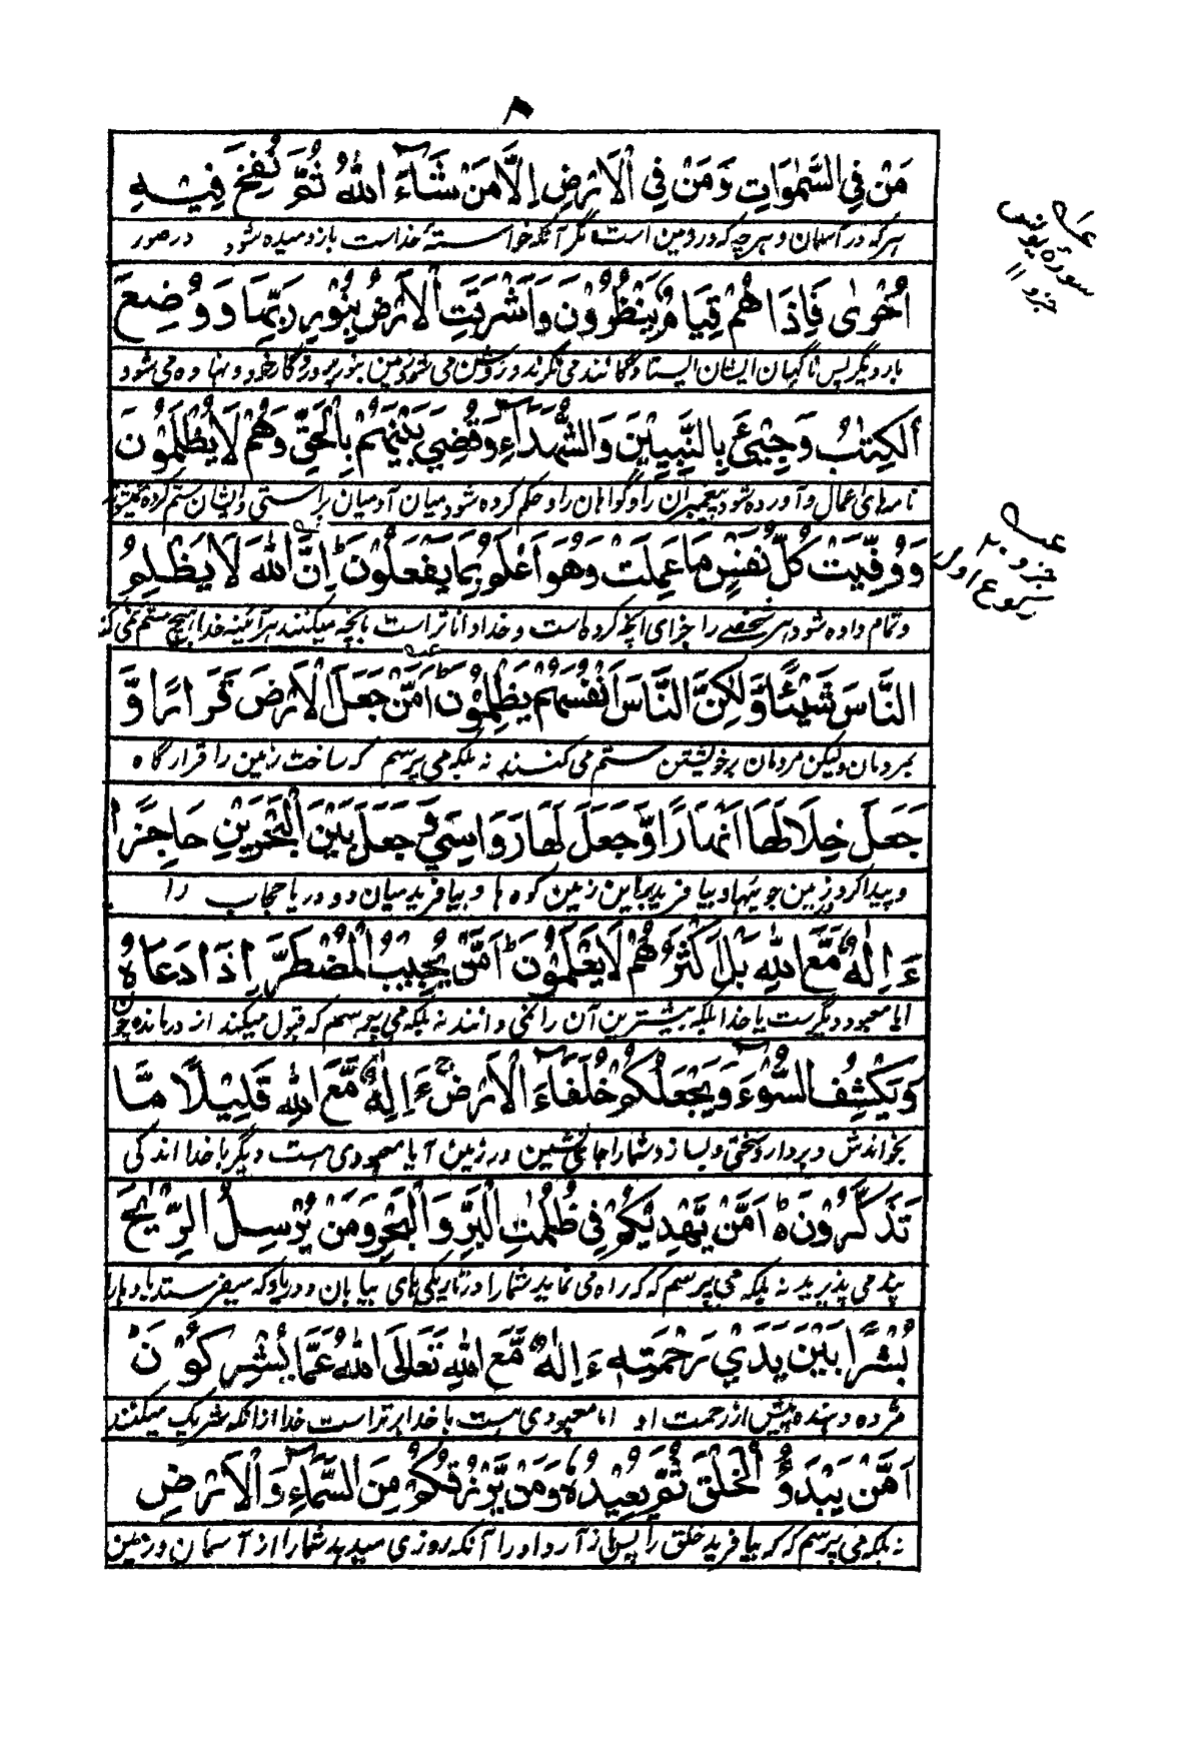 ۸
مَنْ فِي السَّمٰوَاتِ وَمَنْ فِي الْاَرْضِ اِلَّا مَنْ شَآءَ اللهُ ثُمَّ نُفِخَ فِيْهِ
هر که در آسمان و هر چه که در زمین است مگر آنکه خواستهٔ خداست باز دمیده شود در صور
اُخْرٰى فَاِذَا هُمْ قِيَامٌ يَّنْظُرُوْنَ وَاَشْرَقَتِ الْاَرْضُ بِنُوْرِ رَبِّهَا وَوُضِعَ
بار دیگر پس ناگهان ایشان ایستادگانند می نگرند و روشن می شود زمین بنور پروردگار خود و نهاده می شود
الْكِتٰبُ وَجِيْئَ بِالنَّبِيِّيْنَ وَالشُّهَدَآءِ وَقُضِيَ بَيْنَهُمْ بِالْحَقِّ وَهُمْ لَا يُظْلَمُوْنَ
نامه های اعمال و آورده شود پیغمبران را و گواهان را و حکم کرده شود میان آدمیان براستی و ایشان ستم کرده نمیشوند
وَوُفِّيَتْ كُلُّ نَفْسٍ مَا عَمِلَتْ وَهُوَ اَعْلَمُ بِمَا يَفْعَلُوْنَ اِنَّ اللهَ لَا يَظْلِمُ
و تمام داده شود هر شخصے را جزای آنچه کرده است و خدا داناتر است بآنچه میکنند هر آئینه خدا هیچ ستم نمی کند
النَّاسَ شَيْئًا وَّلٰكِنَّ النَّاسَ اَنْفُسَهُمْ يَظْلِمُوْنَ اَمَّنْ جَعَلَ الْاَرْضَ قَرَارًا وَّ
بمردمان ولیکن مردمان بر خویشتن ستم می کنند نه بلکه می پرسم که ساخت زمین را قرارگاه
جَعَلَ خِلَالَهَا اَنْهَارًا وَّجَعَلَ لَهَا رَوَاسِيَ وَجَعَلَ بَيْنَ الْبَحْرَيْنِ حَاجِزًا
و پیدا کرد زمین جویها و بیافرید براین زمین کوه ها و بیافرید میان دو دریا حجاب را
ءَاِلٰهٌ مَّعَ اللهِ بَلْ اَكْثَرُهُمْ لَا يَعْلَمُوْنَ اَمَّنْ يُّجِيْبُ الْمُضْطَرَّ اِذَا دَعَاهُ
آیا معبود دیگرست با خدا بلکه بیشترین آن را نمی دانند نه بلکه می پرسم که قبول میکند از درمانده چون
وَيَكْشِفُ السُّوْٓءَ وَيَجْعَلُكُمْ خُلَفَآءَ الْاَرْضِ ءَاِلٰهٌ مَّعَ اللهِ قَلِيْلًا مَّا
بخواندش و بردارد سختی و بسازد شمارا جانشین در زمین آیا معبودی هست دیگر با خدا اندکی
تَذَكَّرُوْنَ اَمَّنْ يَّهْدِيْكُمْ فِي ظُلُمٰتِ الْبَرِّ وَالْبَحْرِ وَمَنْ يُّرْسِلُ الرِّيٰحَ
پند می پذیرید نه بلکه می پرسم که که راه می نماید شمارا در تاریکی های بیابان و دریا و که میفرستد بادها را
بُشْرًا بَيْنَ يَدَيْ رَحْمَتِهٖ ءَاِلٰهٌ مَّعَ اللهِ تَعَالَى اللهُ عَمَّا يُشْرِكُوْنَ
مژده دهنده پیش از رحمت او آیا معبودی هست با خدا برتر است خدا از آنکه شریک میکنند
اَمَّنْ يَبْدَؤُ الْخَلْقَ ثُمَّ يُعِيْدُهٗ وَمَنْ يَّرْزُقُكُمْ مِنَ السَّمَآءِ وَالْاَرْضِ
نه بلکه می پرسم که که بیافرید خلق را پس باز آرد او را آنکه روزی میدهد شمارا از آسمان و زمین
سورهٔ یونس
جزو ۱۱
جزو ۲۰
رکوع اول